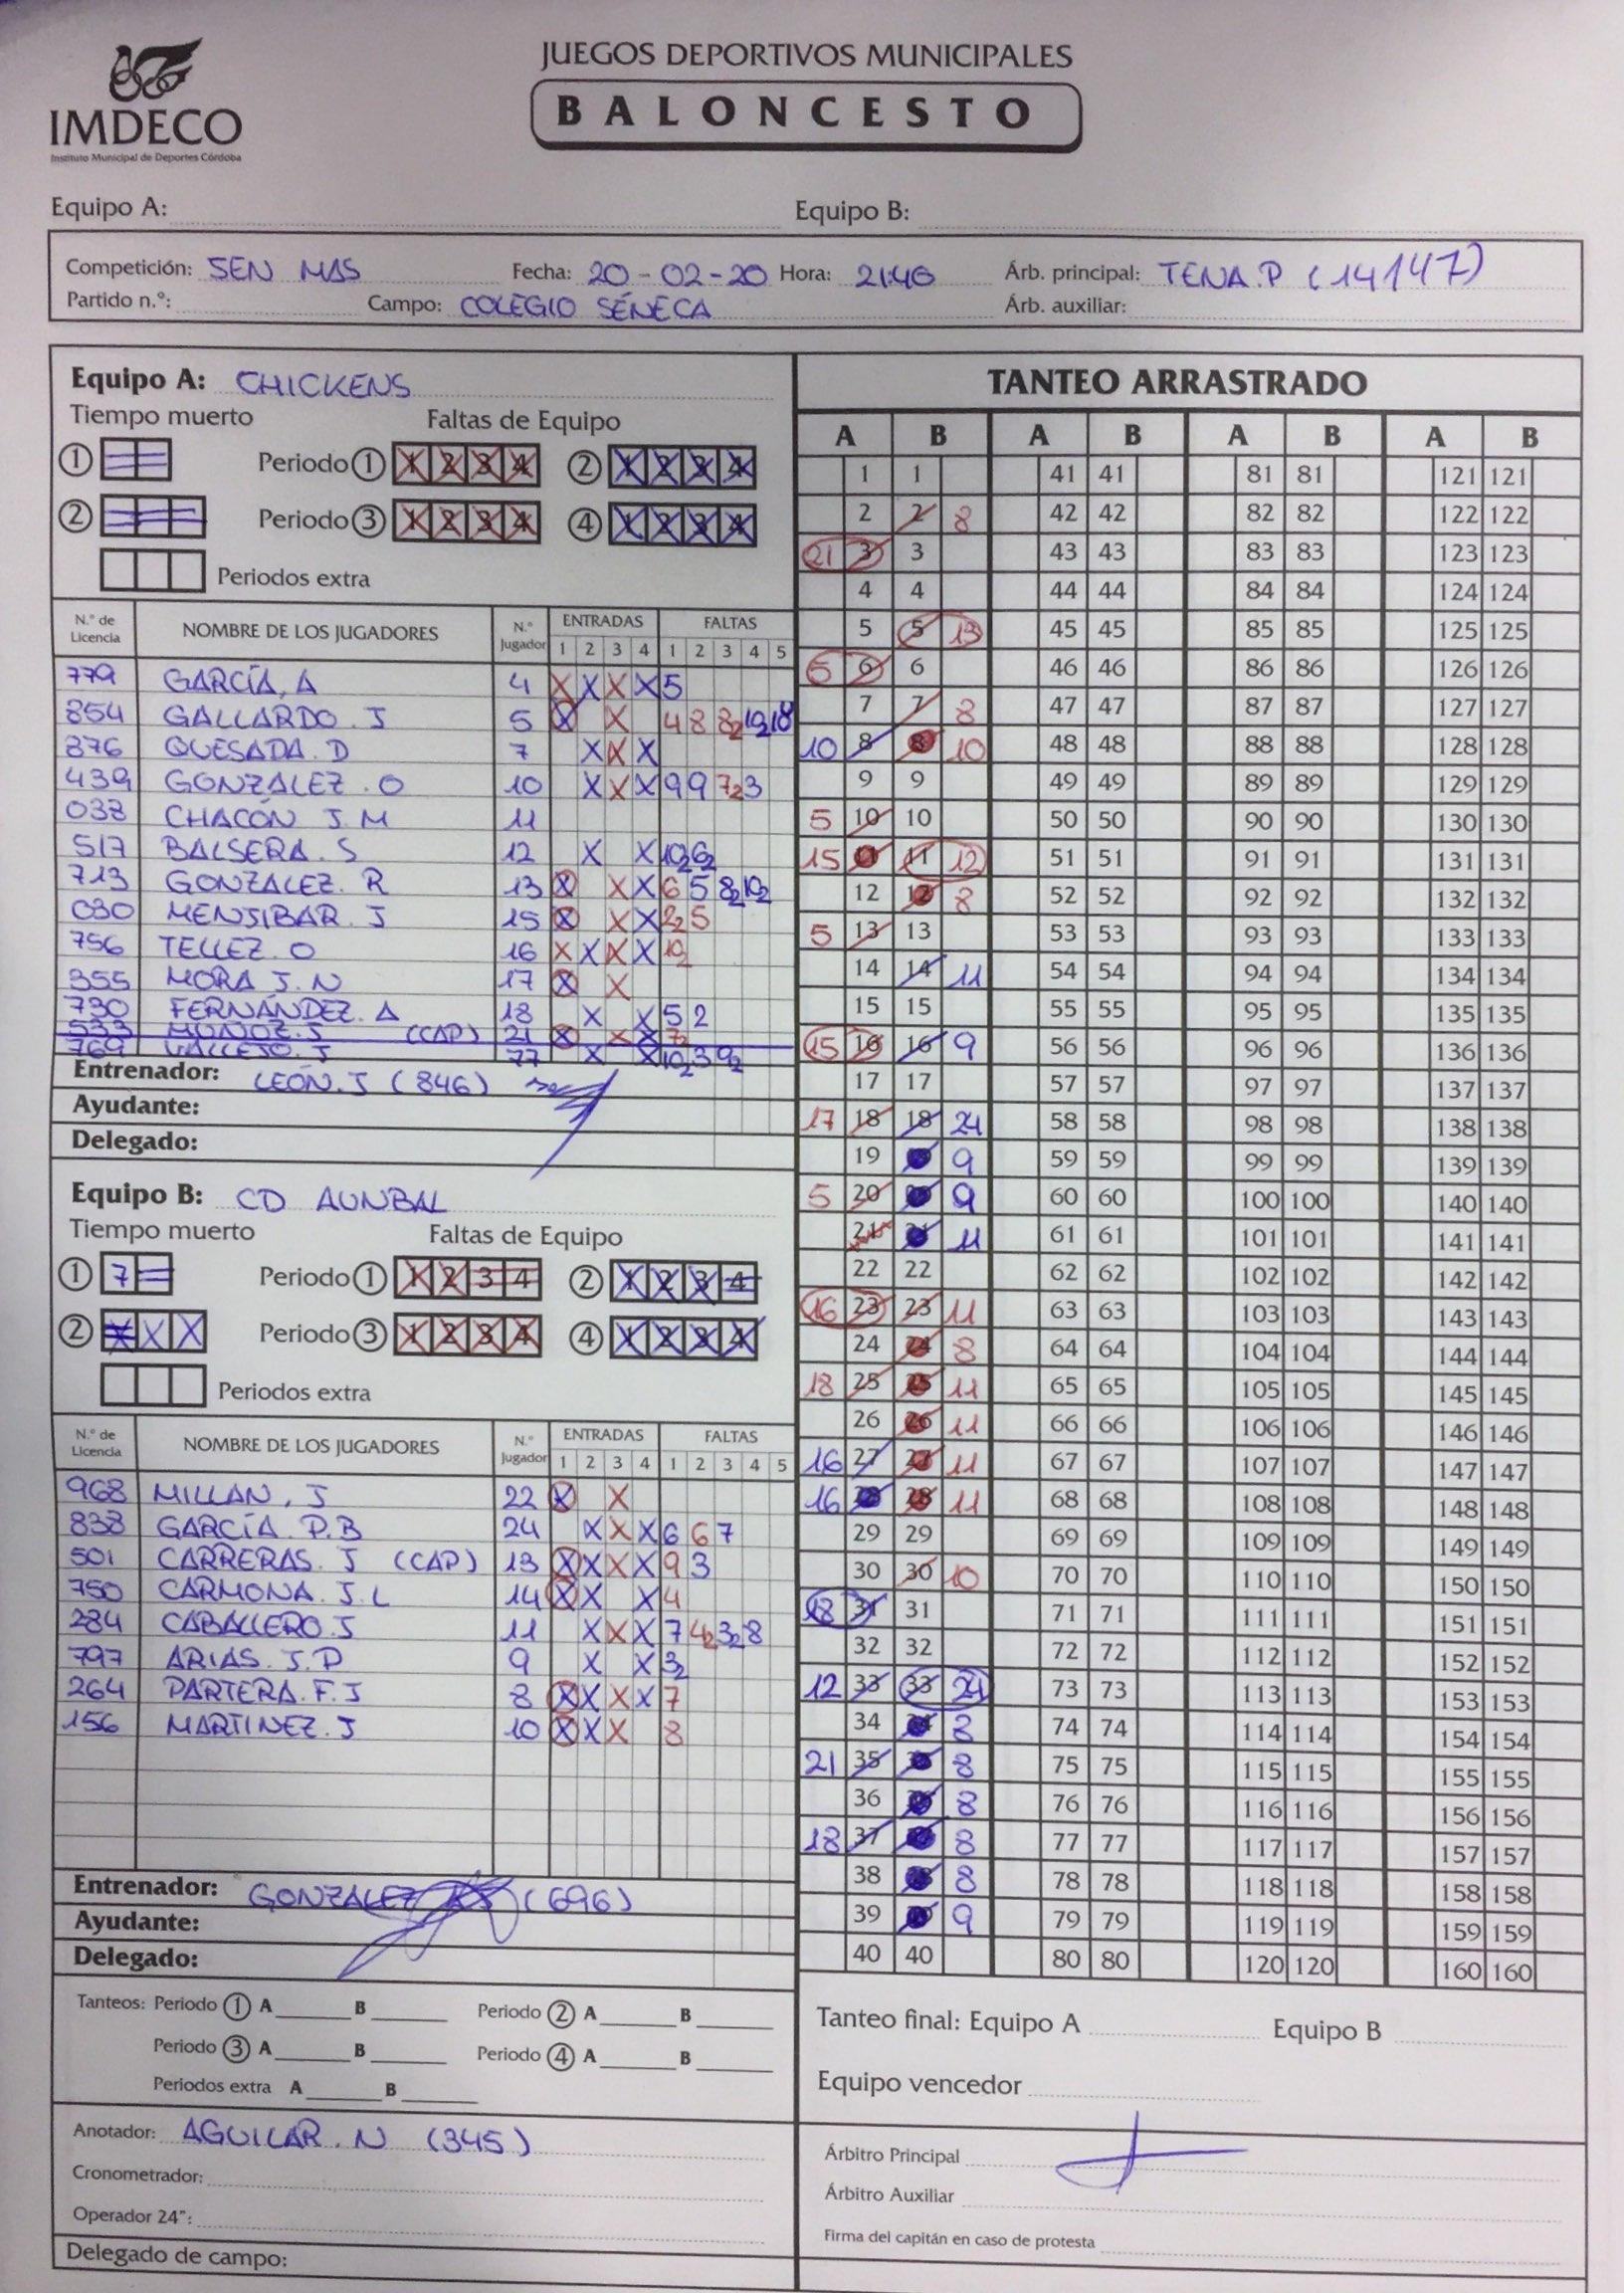 JUEGOS DEPORTIVOS MUNICIPALES
BALONCESTO
IMDECO
Instituto Municipal de Deportes Córdoba
Equipo A:
Equipo B:
Competición: SEN MAS Fecha: 20-02-20 Hora: 21:40 Árb. principal: TENA.P (14147)
Partido n.º: Campo: COLEGIO SÉNECA Árb. auxiliar:
Equipo A: CHICKENS
Tiempo muerto Faltas de Equipo
① Periodo ① 1 2 3 4 ② 1 2 3 4
② Periodo ③ 1 2 3 4 ④ 1 2 3 4
Periodos extra
N.º de Licencia NOMBRE DE LOS JUGADORES N.º Jugador ENTRADAS FALTAS
1 2 3 4 1 2 3 4 5
779 GARCÍA, A 4 X X X X 5
854 GALLARDO. J 5 X X 4 8 8₂ 10₂ 18
876 QUESADA. D 7 X X X
439 GONZALEZ. O 10 X X X 9 9 7₂ 3
038 CHACÓN J.M 11
517 BALSERA. S 12 X X 10₂ 6₂
713 GONZALEZ. R 13 X X X 6 5 8₂ 10₂
030 MENJIBAR. J 15 X X X 2₂ 5
756 TELLEZ. O 16 X X X X 10₂
355 MORA J.N 17 X X
730 FERNÁNDEZ. A 18 X X 5 2
533 MUÑOZ. J (CAP) 21 X X X 7₂
769 VALLEJO. J 77 X X 10₂ 3 9₂
Entrenador: LEÓN. J (846)
Ayudante:
Delegado:
Equipo B: CD AUNBAL
Tiempo muerto Faltas de Equipo
① 7 Periodo ① 1 2 3 4 ② 1 2 3 4
② X X X Periodo ③ 1 2 3 4 ④ 1 2 3 4
Periodos extra
N.º de Licencia NOMBRE DE LOS JUGADORES N.º Jugador ENTRADAS FALTAS
1 2 3 4 1 2 3 4 5
968 MILLAN, J 22 X X
838 GARCÍA. P.B 24 X X X 6 6 7
501 CARRERAS. J (CAP) 13 X X X X 9 3
750 CARMONA. J.L 14 X X X 4
284 CABALLERO. J 11 X X X 7 4₂ 3₂ 8
797 ARIAS. J.P 9 X X 3₂
264 PARTERA. F.J 8 X X X X 7
156 MARTINEZ. J 10 X X X 8
Entrenador: GONZALEZ (696)
Ayudante:
Delegado:
Tanteos: Periodo ① A B Periodo ② A B
Periodo ③ A B Periodo ④ A B
Periodos extra A B
Anotador: AGUILAR. N (345)
Cronometrador:
Operador 24":
Delegado de campo:
TANTEO ARRASTRADO
A B A B A B A B
1 1 41 41 81 81 121 121
2 2 8 42 42 82 82 122 122
21 3 3 43 43 83 83 123 123
4 4 44 44 84 84 124 124
5 5 13 45 45 85 85 125 125
5 6 6 46 46 86 86 126 126
7 7 8 47 47 87 87 127 127
10 8 8 10 48 48 88 88 128 128
9 9 49 49 89 89 129 129
5 10 10 50 50 90 90 130 130
15 11 11 12 51 51 91 91 131 131
12 12 8 52 52 92 92 132 132
5 13 13 53 53 93 93 133 133
14 14 11 54 54 94 94 134 134
15 15 55 55 95 95 135 135
15 16 16 9 56 56 96 96 136 136
17 17 57 57 97 97 137 137
17 18 18 24 58 58 98 98 138 138
19 19 9 59 59 99 99 139 139
5 20 20 9 60 60 100 100 140 140
21 21 11 61 61 101 101 141 141
22 22 62 62 102 102 142 142
16 23 23 11 63 63 103 103 143 143
24 24 8 64 64 104 104 144 144
18 25 25 11 65 65 105 105 145 145
26 26 11 66 66 106 106 146 146
16 27 27 11 67 67 107 107 147 147
16 28 28 11 68 68 108 108 148 148
29 29 69 69 109 109 149 149
30 30 10 70 70 110 110 150 150
18 31 31 71 71 111 111 151 151
32 32 72 72 112 112 152 152
12 33 33 24 73 73 113 113 153 153
34 34 8 74 74 114 114 154 154
21 35 35 8 75 75 115 115 155 155
36 36 8 76 76 116 116 156 156
18 37 37 8 77 77 117 117 157 157
38 38 8 78 78 118 118 158 158
39 39 9 79 79 119 119 159 159
40 40 80 80 120 120 160 160
Tanteo final: Equipo A Equipo B
Equipo vencedor
Árbitro Principal
Árbitro Auxiliar
Firma del capitán en caso de protesta